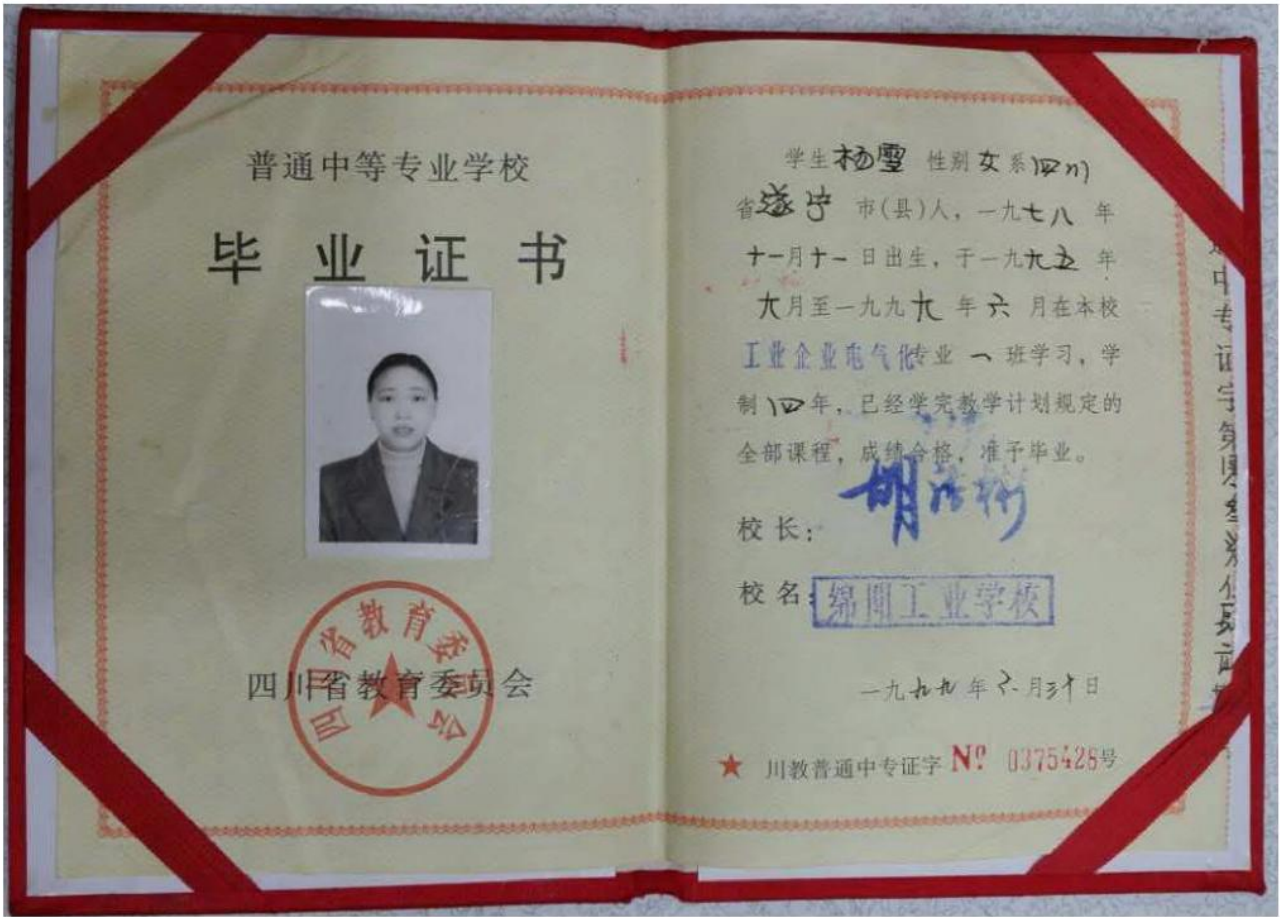 普通中等专业学校
毕业证书
四川省教育委员会
四川省教育委员会
学生杨雪 性别女系四川
省遂宁 市(县)人，一九七八 年
十一月十一日出生，于一九九五年
九月至一九九九年六月在本校
工业企业电气化专业一班学习，学
制四年，已经学完教学计划规定的
全部课程，成绩合格，准予毕业。
校长：
校名：绵阳工业学校
一九九九年六月三十日
川教普通中专证字 Nº 0375426号
中专证字第